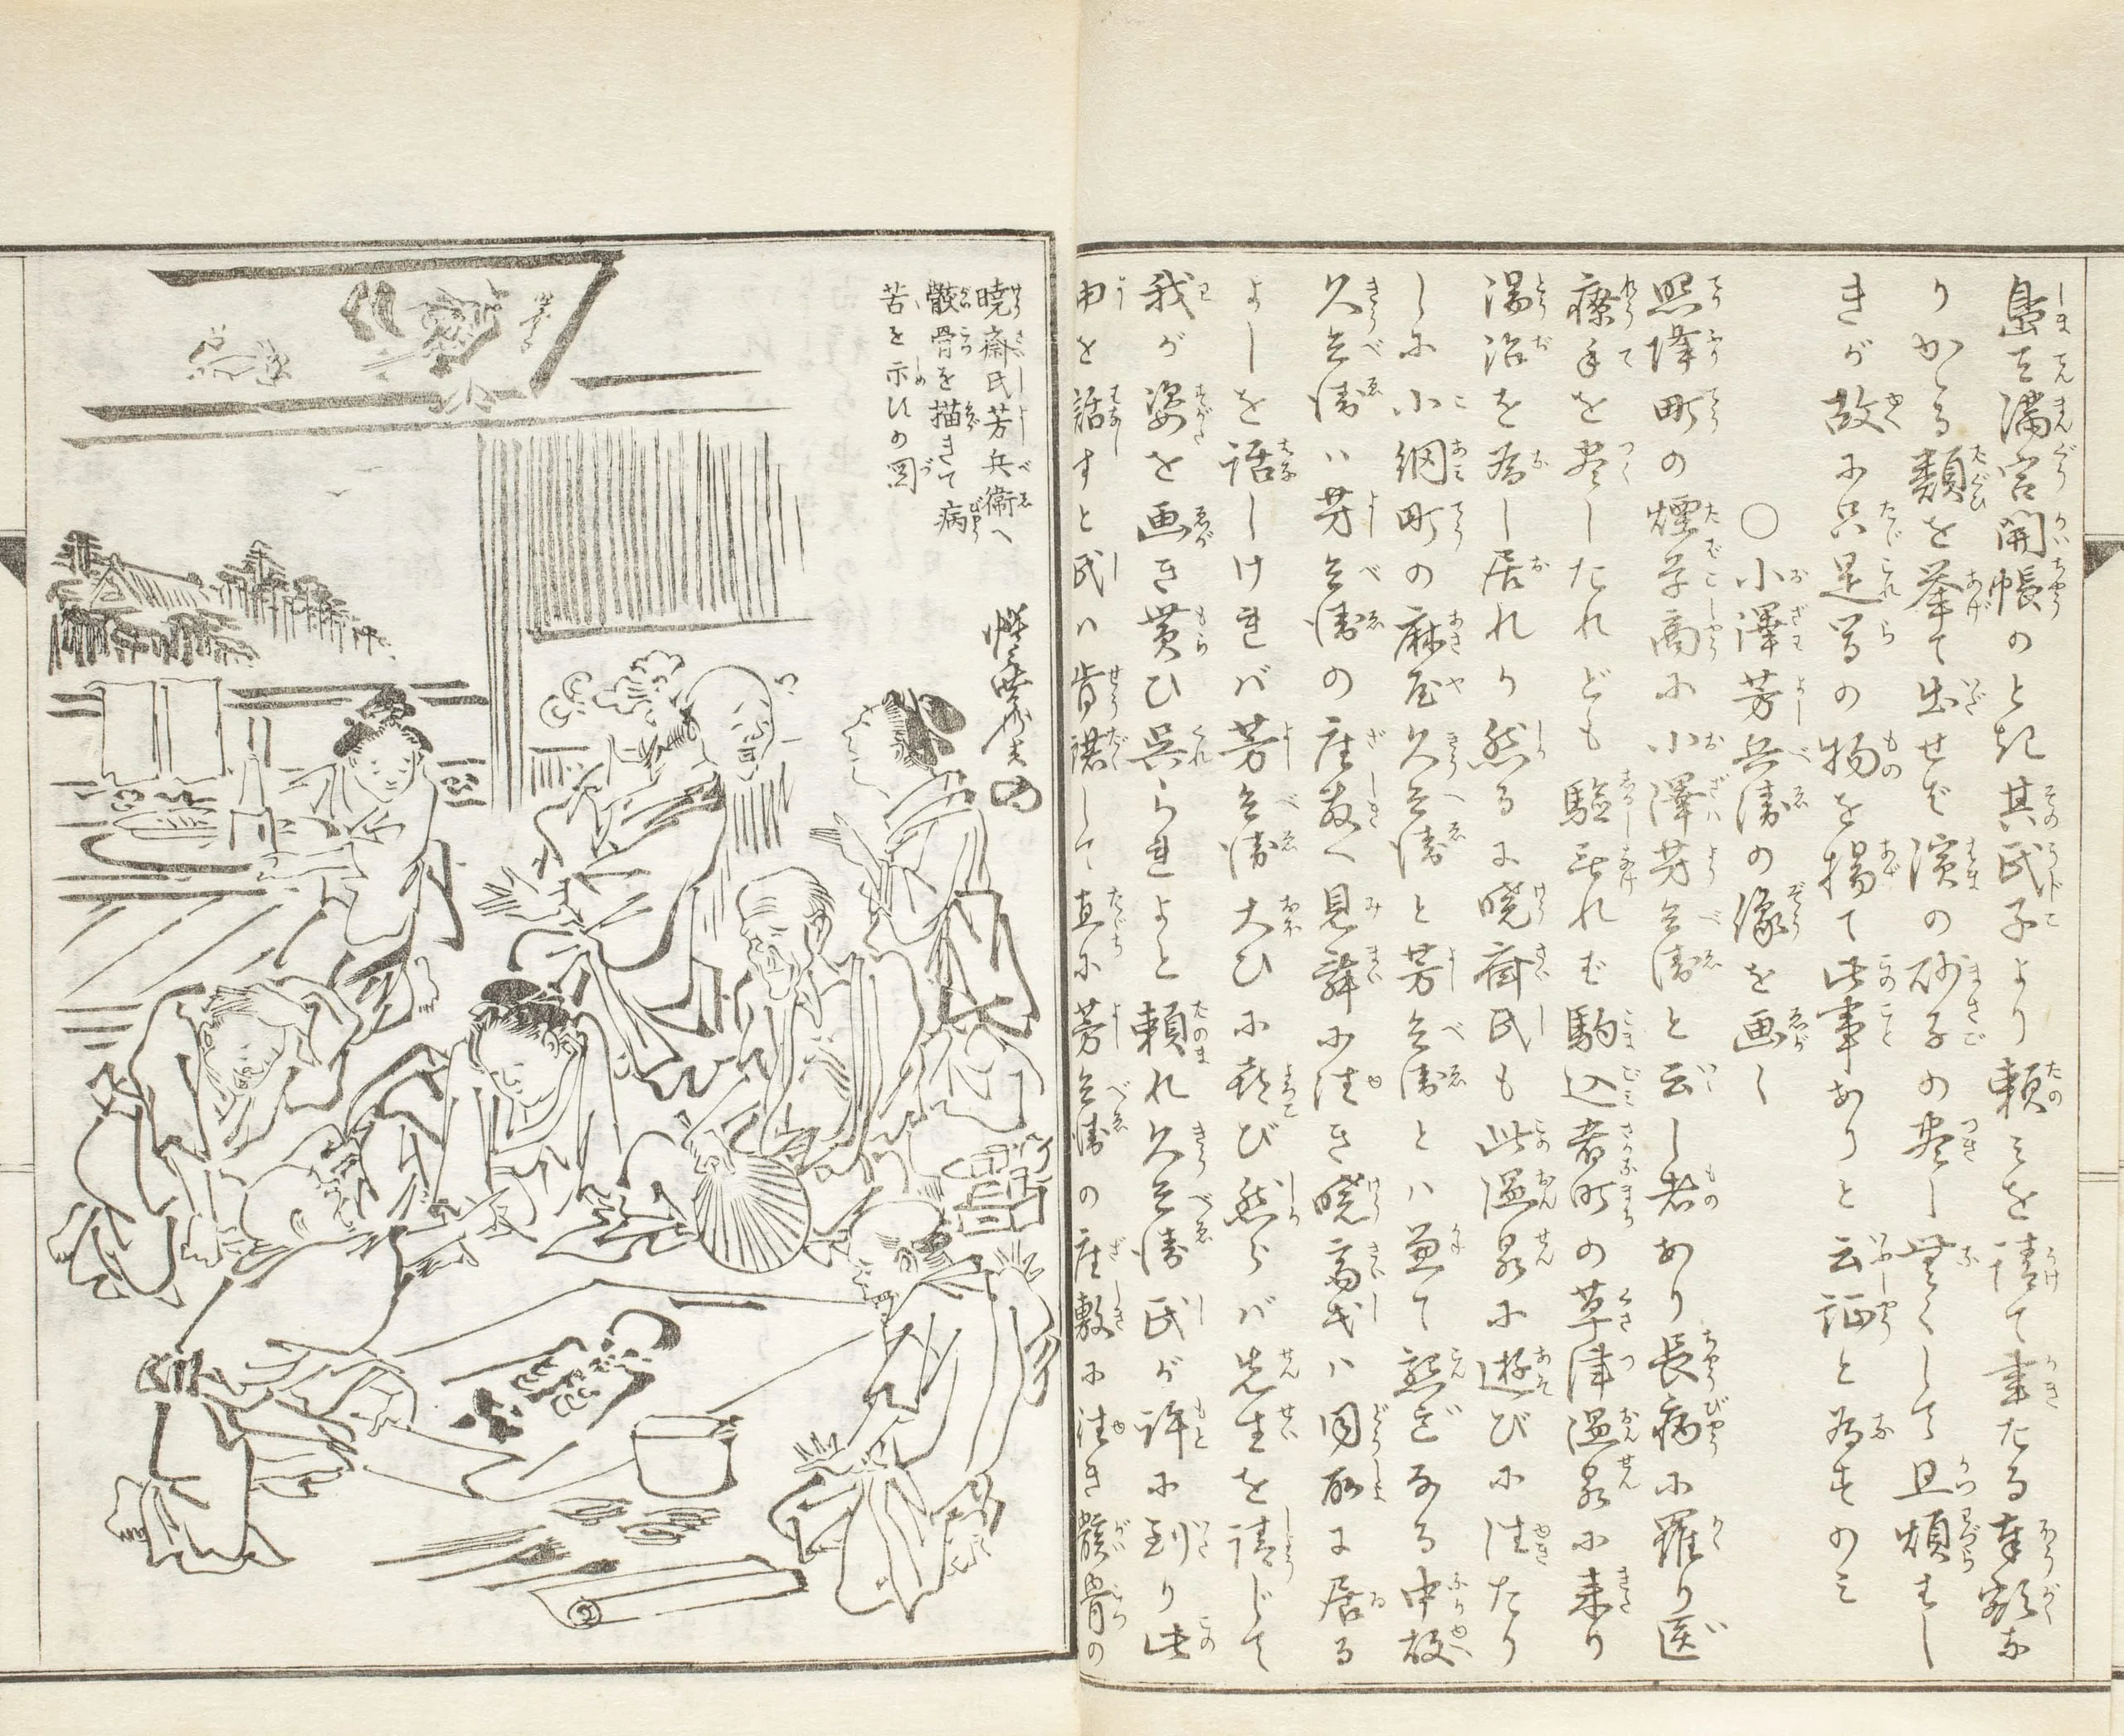 島天満宮開帳のとき其氏子より頼ミを請て画たる奉額な
りかゝる類を挙て出せば濱の砂子の尽し無くして且煩はし
きが故に只是等の物を揚て此事ありと云証と為すのミ
〇小澤芳兵衛の像を画く
照降町の煙草商に小澤芳兵衛と云し者あり長病に羅り医
療手を尽したれども驗無れば駒込肴町の草津温泉に来り
湯治を為し居れり然るに暁斎氏も此温泉に遊びに往たり
しに小網町の麻屋久兵衛と芳兵衛とハ兼て懇ごなる中故
久兵衛ハ芳兵衛の座敷へ見舞に往き暁斎氏ハ同所に居る
よしを話しければ芳兵衛大ひに喜び然らバ先生を請じて
我が姿を画き貰ひ呉られよと頼れ久兵衛氏が許に到り此
由を話すと氏ハ肯諾して直に芳兵衛の座敷に往き骸骨の
暁斎氏芳兵衛へ
骸骨を描きて病
苦を示すの図